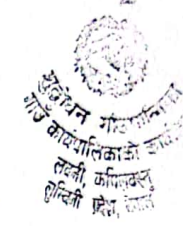 शुद्धोधन गाउँपालिका
गाउँ कार्यपालिकाको कार्यालय
कपिलवस्तु
लुम्बिनी प्रदेश, नेपाल